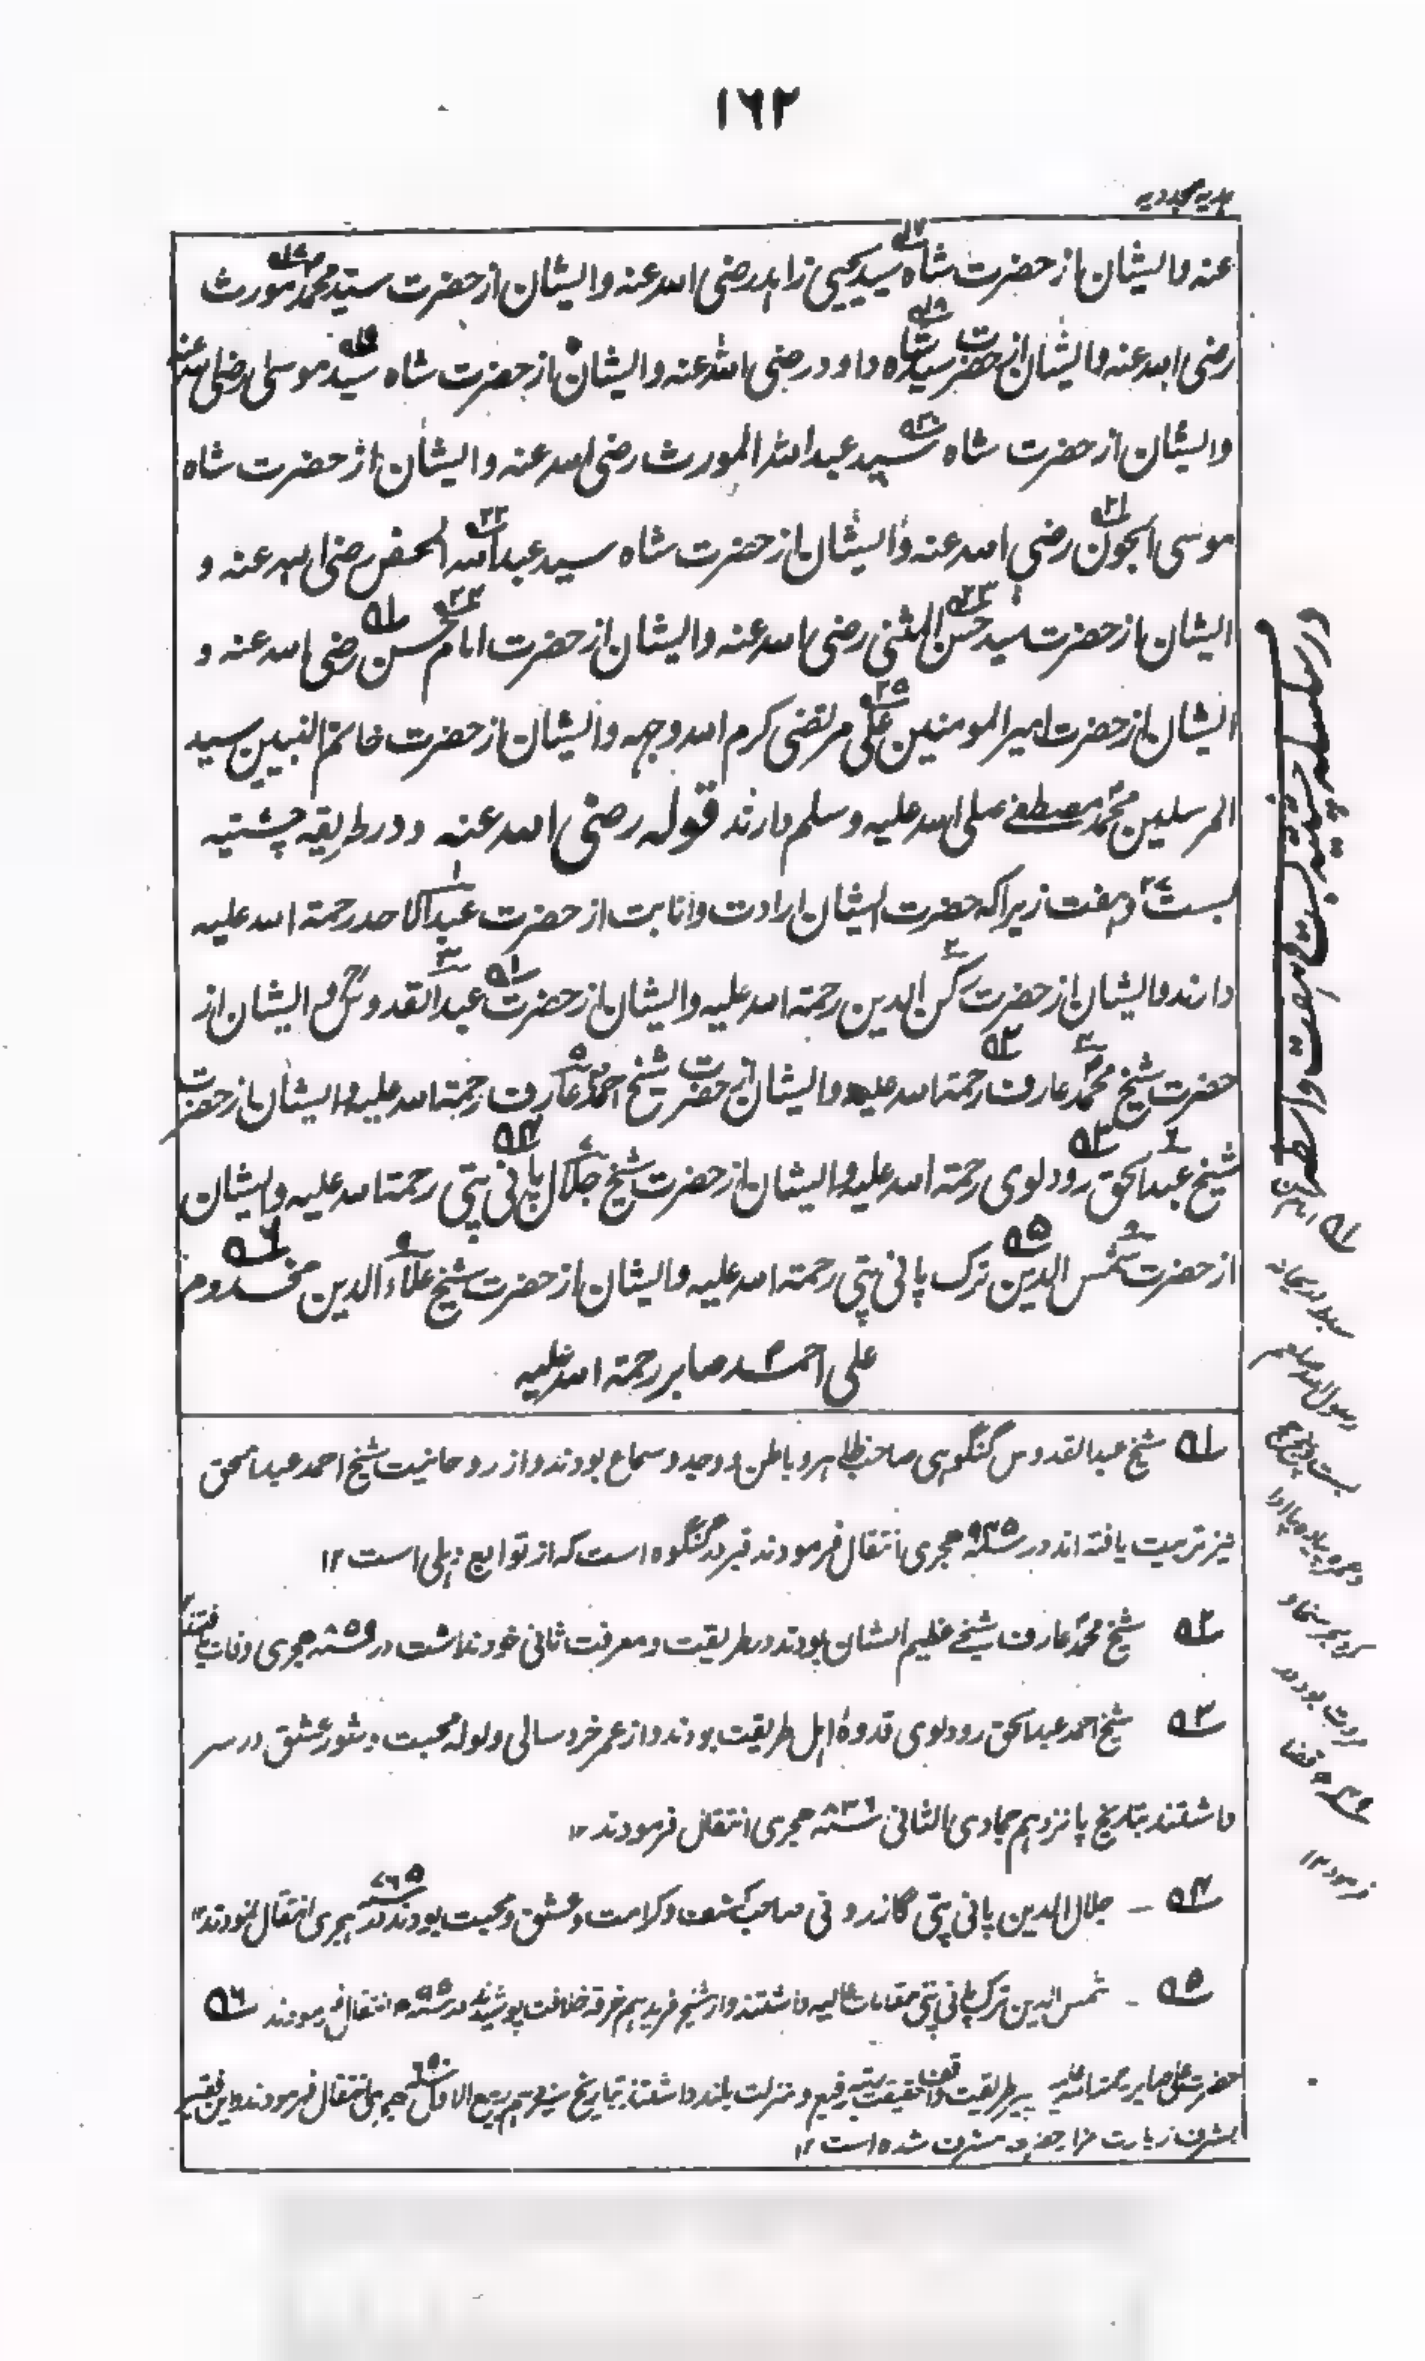 ١٦٢
ہدیہ مجددیہ
عنہ وایشان از حضرت شاہ سید یحیی زاہد رضی اللہ عنہ وایشان از حضرت سید محمد مورث
رضی اللہ عنہ وایشان از حضرت سید شاہ داود رضی اللہ عنہ وایشان از حضرت شاہ سید موسی رضی اللہ عنہ
وایشان از حضرت شاہ سید عبد اللہ المورث رضی اللہ عنہ وایشان از حضرت شاہ
موسی الجون رضی اللہ عنہ وایشان از حضرت شاہ سید عبد اللہ المحض رضی اللہ عنہ و
ایشان از حضرت سید حسن المثنی رضی اللہ عنہ وایشان از حضرت امام حسن رضی اللہ عنہ و
ایشان از حضرت امیر المومنین علی مرتضی کرم اللہ وجہہ وایشان از حضرت خاتم النبیین سید
المرسلین محمد مصطفے صلی اللہ علیہ وسلم دارند قولہ رضی اللہ عنہ و در طریقہ چشتیہ
بست و ہفت زیراکہ حضرت ایشان ارادت وانابت از حضرت عبد الاحد رحمۃ اللہ علیہ
دارند وایشان از حضرت رکن الدین رحمۃ اللہ علیہ وایشان از حضرت عبد القدوس وایشان از
حضرت شیخ محمد عارف رحمۃ اللہ علیہ وایشان از حضرت شیخ احمد عارف رحمۃ اللہ علیہ وایشان از حضرت
شیخ عبد الحق رودلوی رحمۃ اللہ علیہ وایشان از حضرت شیخ جلال پانی پتی رحمۃ اللہ علیہ وایشان
از حضرت شمس الدین ترک پانی پتی رحمۃ اللہ علیہ وایشان از حضرت شیخ علاء الدین مخدوم
علی احمد صابر رحمۃ اللہ علیہ
در سلسلہ چشتیہ بست و ہفت واسطہ
۱ شیخ عبد القدوس گنگوہی صاحب ظاہر وباطن و وجد و سماع بودند و از روحانیت شیخ احمد عبد الحق
نیز تربیت یافتہ اند در سنہ ۹۴۵ ہجری انتقال فرمودند قبر در گنگوہ است کہ از توابع دہلی است ۱۲
۲ شیخ محمد عارف شیخے عظیم الشان بودند در طریقت و معرفت ثانی خود نداشت در سنہ ہجری وفات یافتند
۳ شیخ احمد عبد الحق رودلوی قدوۂ اہل طریقت بودند و از عمر خرد سالی ولولہ محبت و شور عشق در سر
داشتند بتاریخ پانزدہم جمادی الثانی سنہ ۸۳۶ ہجری انتقال فرمودند ۱۲
۴ - جلال الدین پانی پتی گازرونی صاحب کشف و کرامت و عشق و محبت بودند در سنہ ۷۶۵ ہجری انتقال نمودند ۱۲
۵ - شمس الدین ترک پانی پتی مقامات عالیہ داشتند و از شیخ فرید ہم خرقہ خلافت پوشیدند در سنہ انتقال فرمودند ۶
حضرت علی صابر رحمۃ اللہ علیہ پیر طریقت واقف حقیقت رتبہ رفیع و منزلت بلند داشتند بتاریخ سیزدہم ربیع الاول ہجری انتقال فرمودند و این فقیر
بشرف زیارت مزار مشرف شدہ است ۱۲